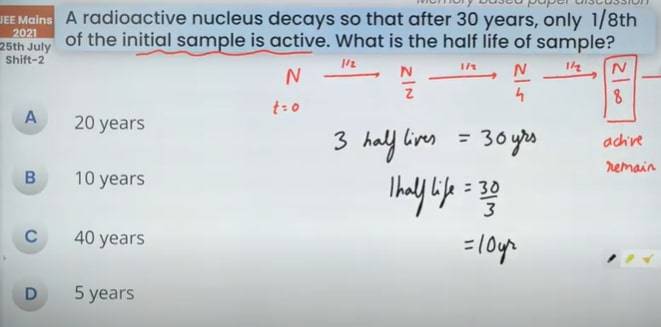 Memory based paper discussion
JEE Mains
2021
25th July
Shift-2
A radioactive nucleus decays so that after 30 years, only 1/8th
of the initial sample is active. What is the half life of sample?
N 1/2 N/2 1/2 N/4 1/2 N/8
t=0
active
remain
A 20 years
B 10 years
C 40 years
D 5 years
3 half lives = 30 yrs
1 half life = 30/3
=10yr